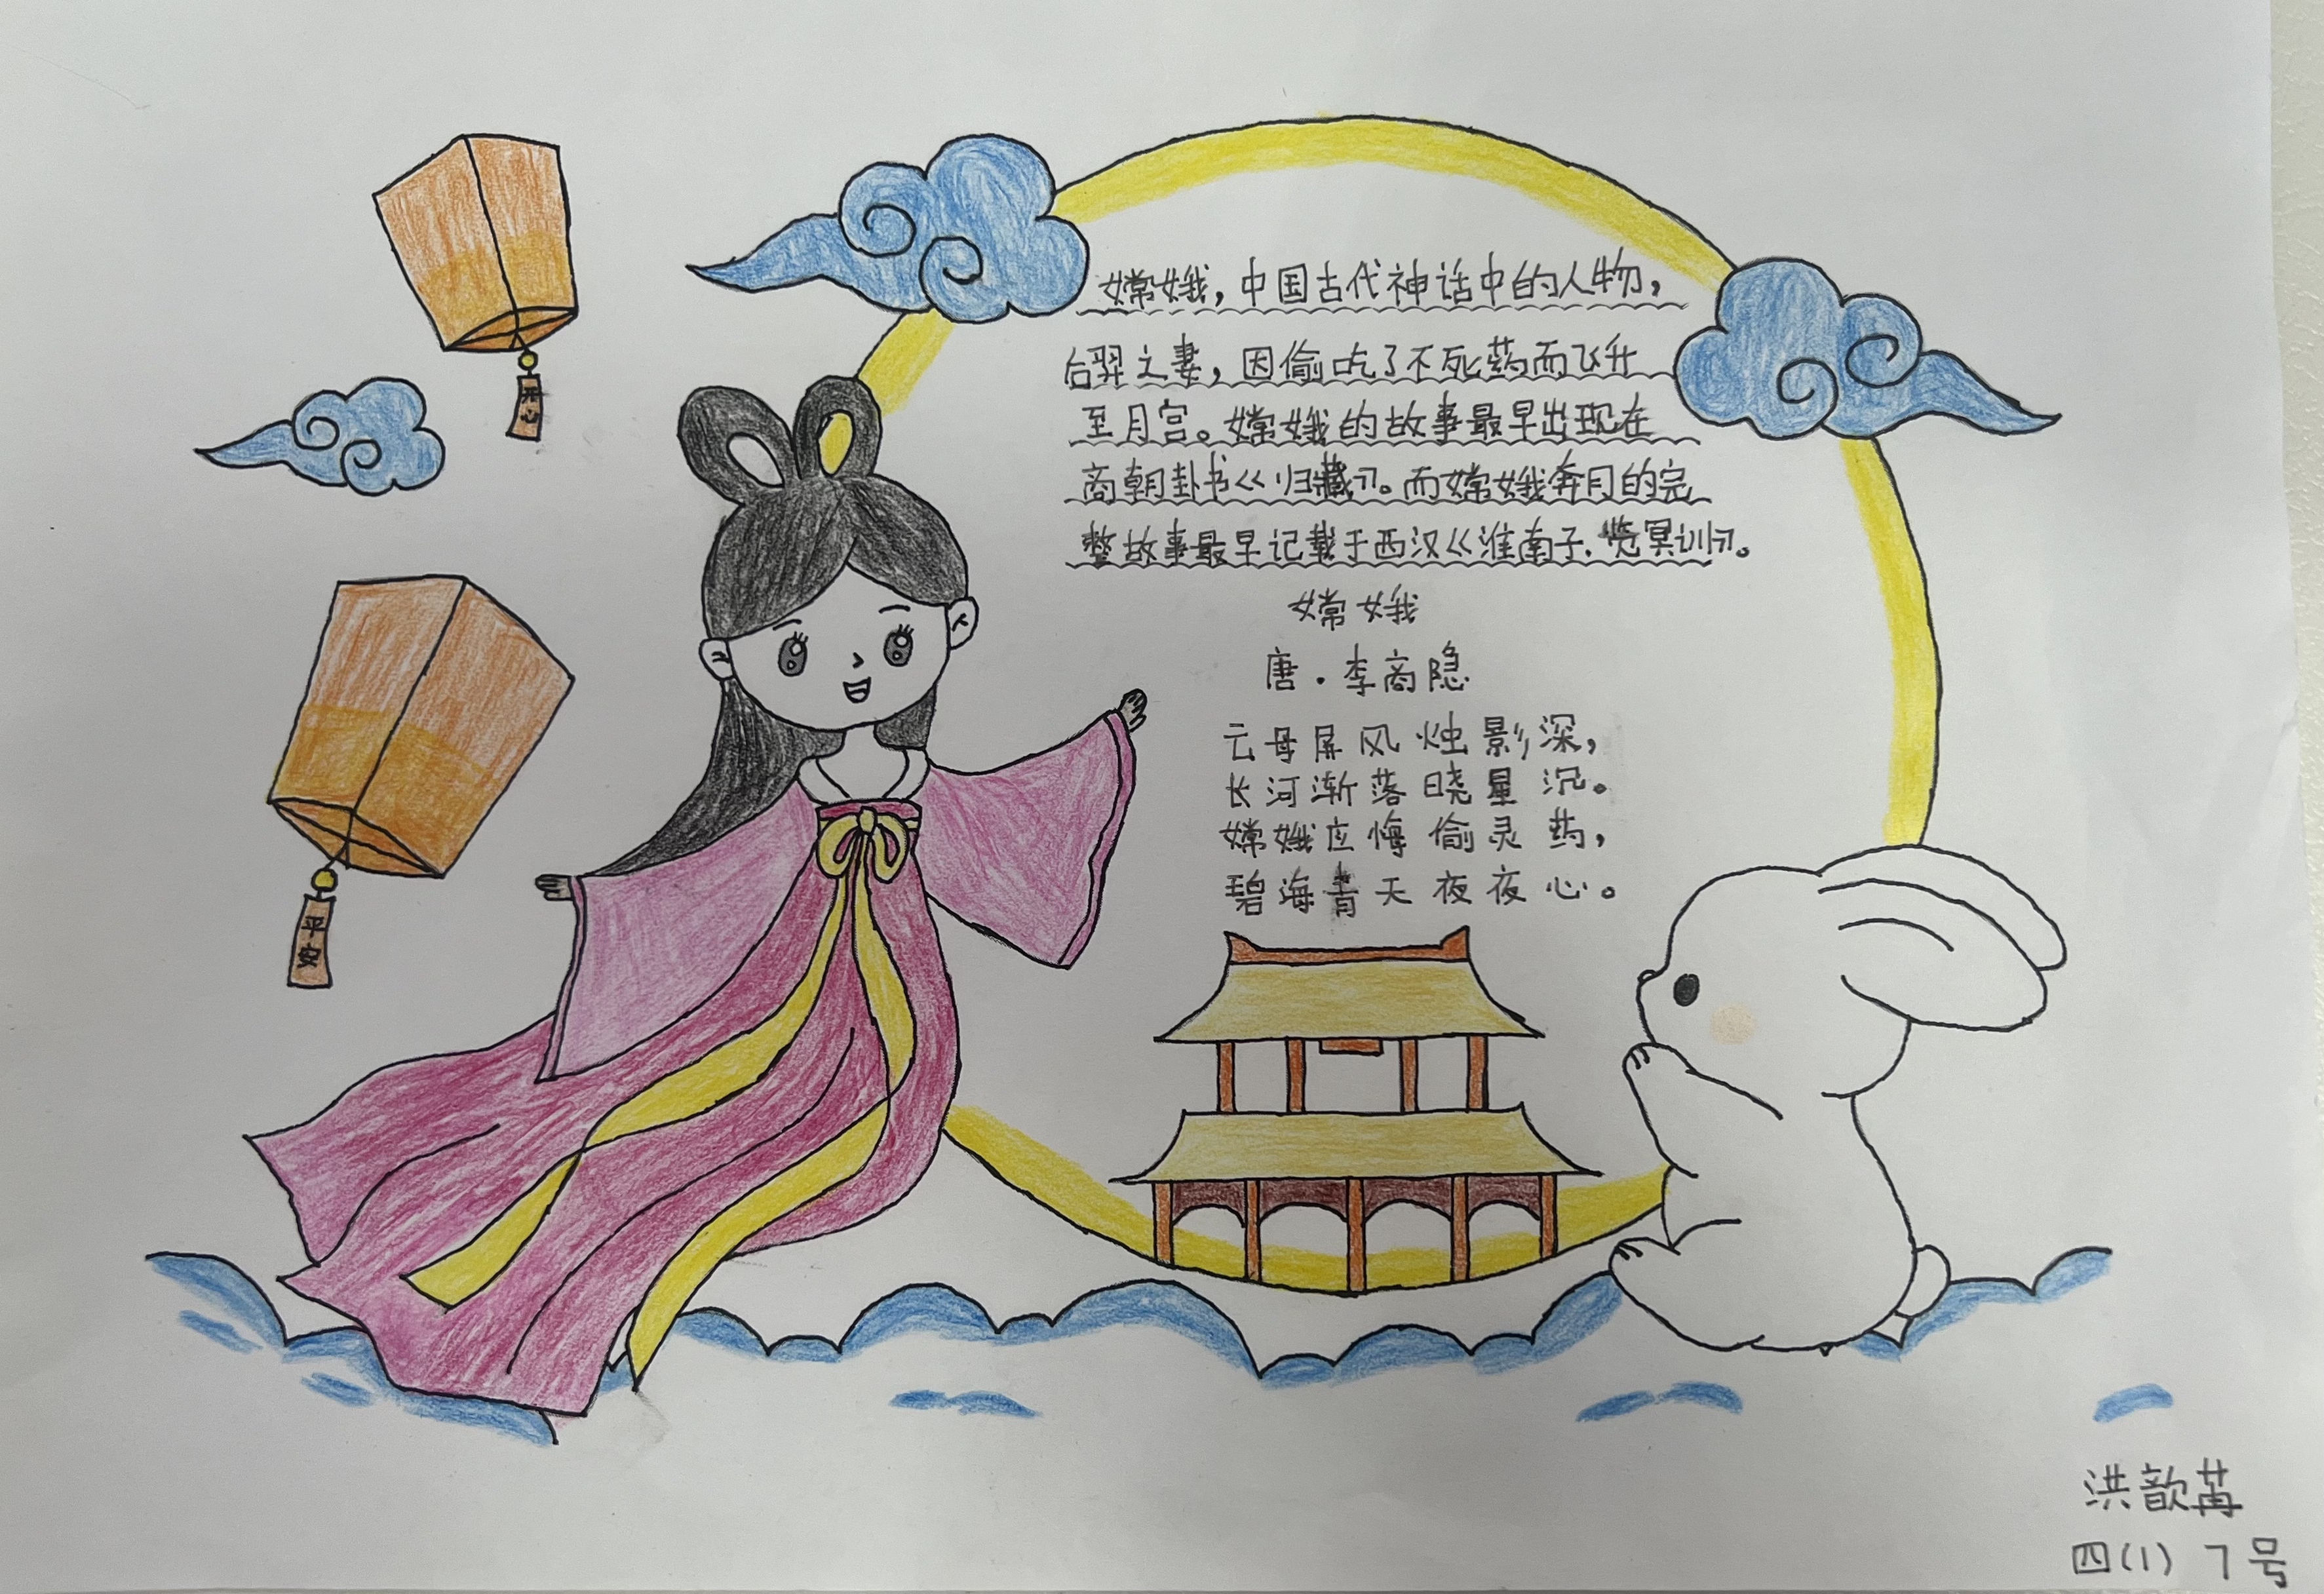 开心
平安
嫦娥，中国古代神话中的人物，
后羿之妻，因偷吃了不死药而飞升
至月宫。嫦娥的故事最早出现在
商朝卦书《归藏》。而嫦娥奔月的完
整故事最早记载于西汉《淮南子·览冥训》。
嫦娥
唐·李商隐
云母屏风烛影深，
长河渐落晓星沉。
嫦娥应悔偷灵药，
碧海青天夜夜心。
洪歆苒
四(1) 7号